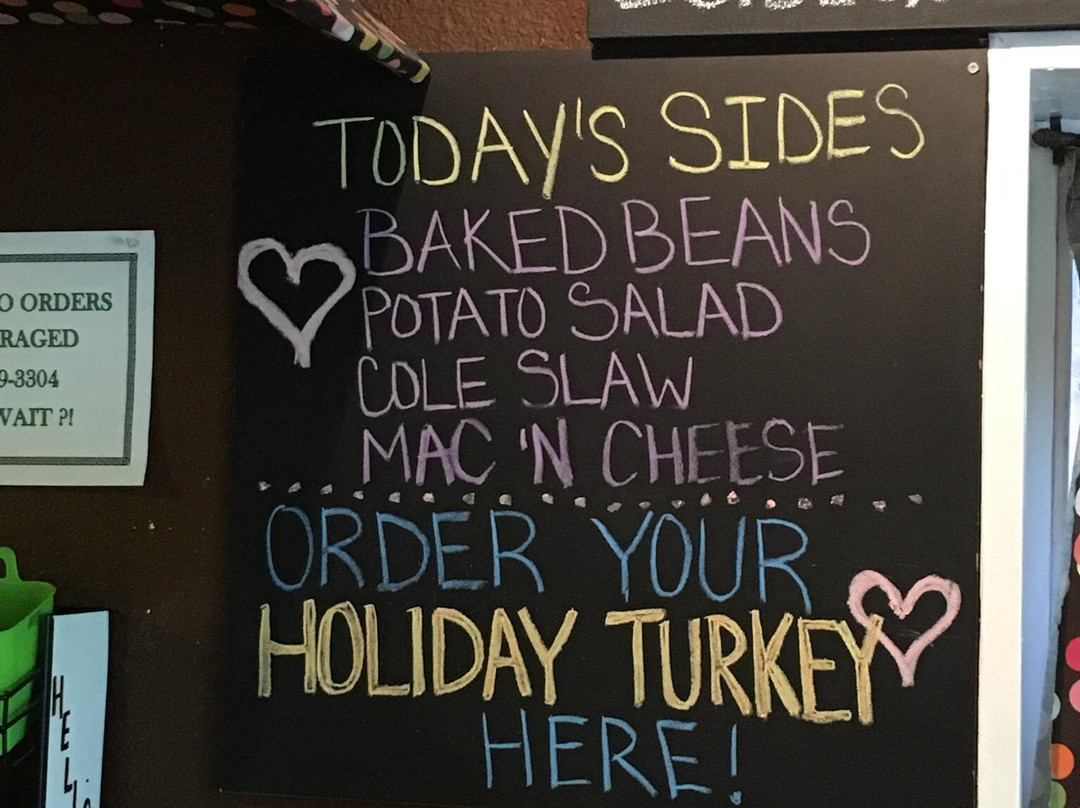 TODAY'S SIDES
BAKED BEANS
POTATO SALAD
COLE SLAW
MAC 'N CHEESE
ORDER YOUR
HOLIDAY TURKEY
HERE!
O ORDERS
RAGED
9-3304
WAIT ?!
HELP